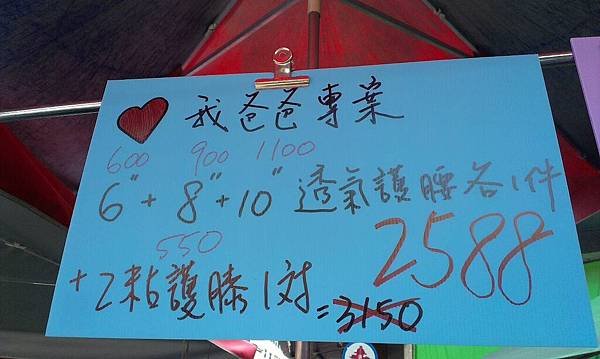 我爸爸專案
600 900 1100
6" + 8" + 10" 透氣護腰各1件
550
+ 2粘護膝1对 = 3150
2588